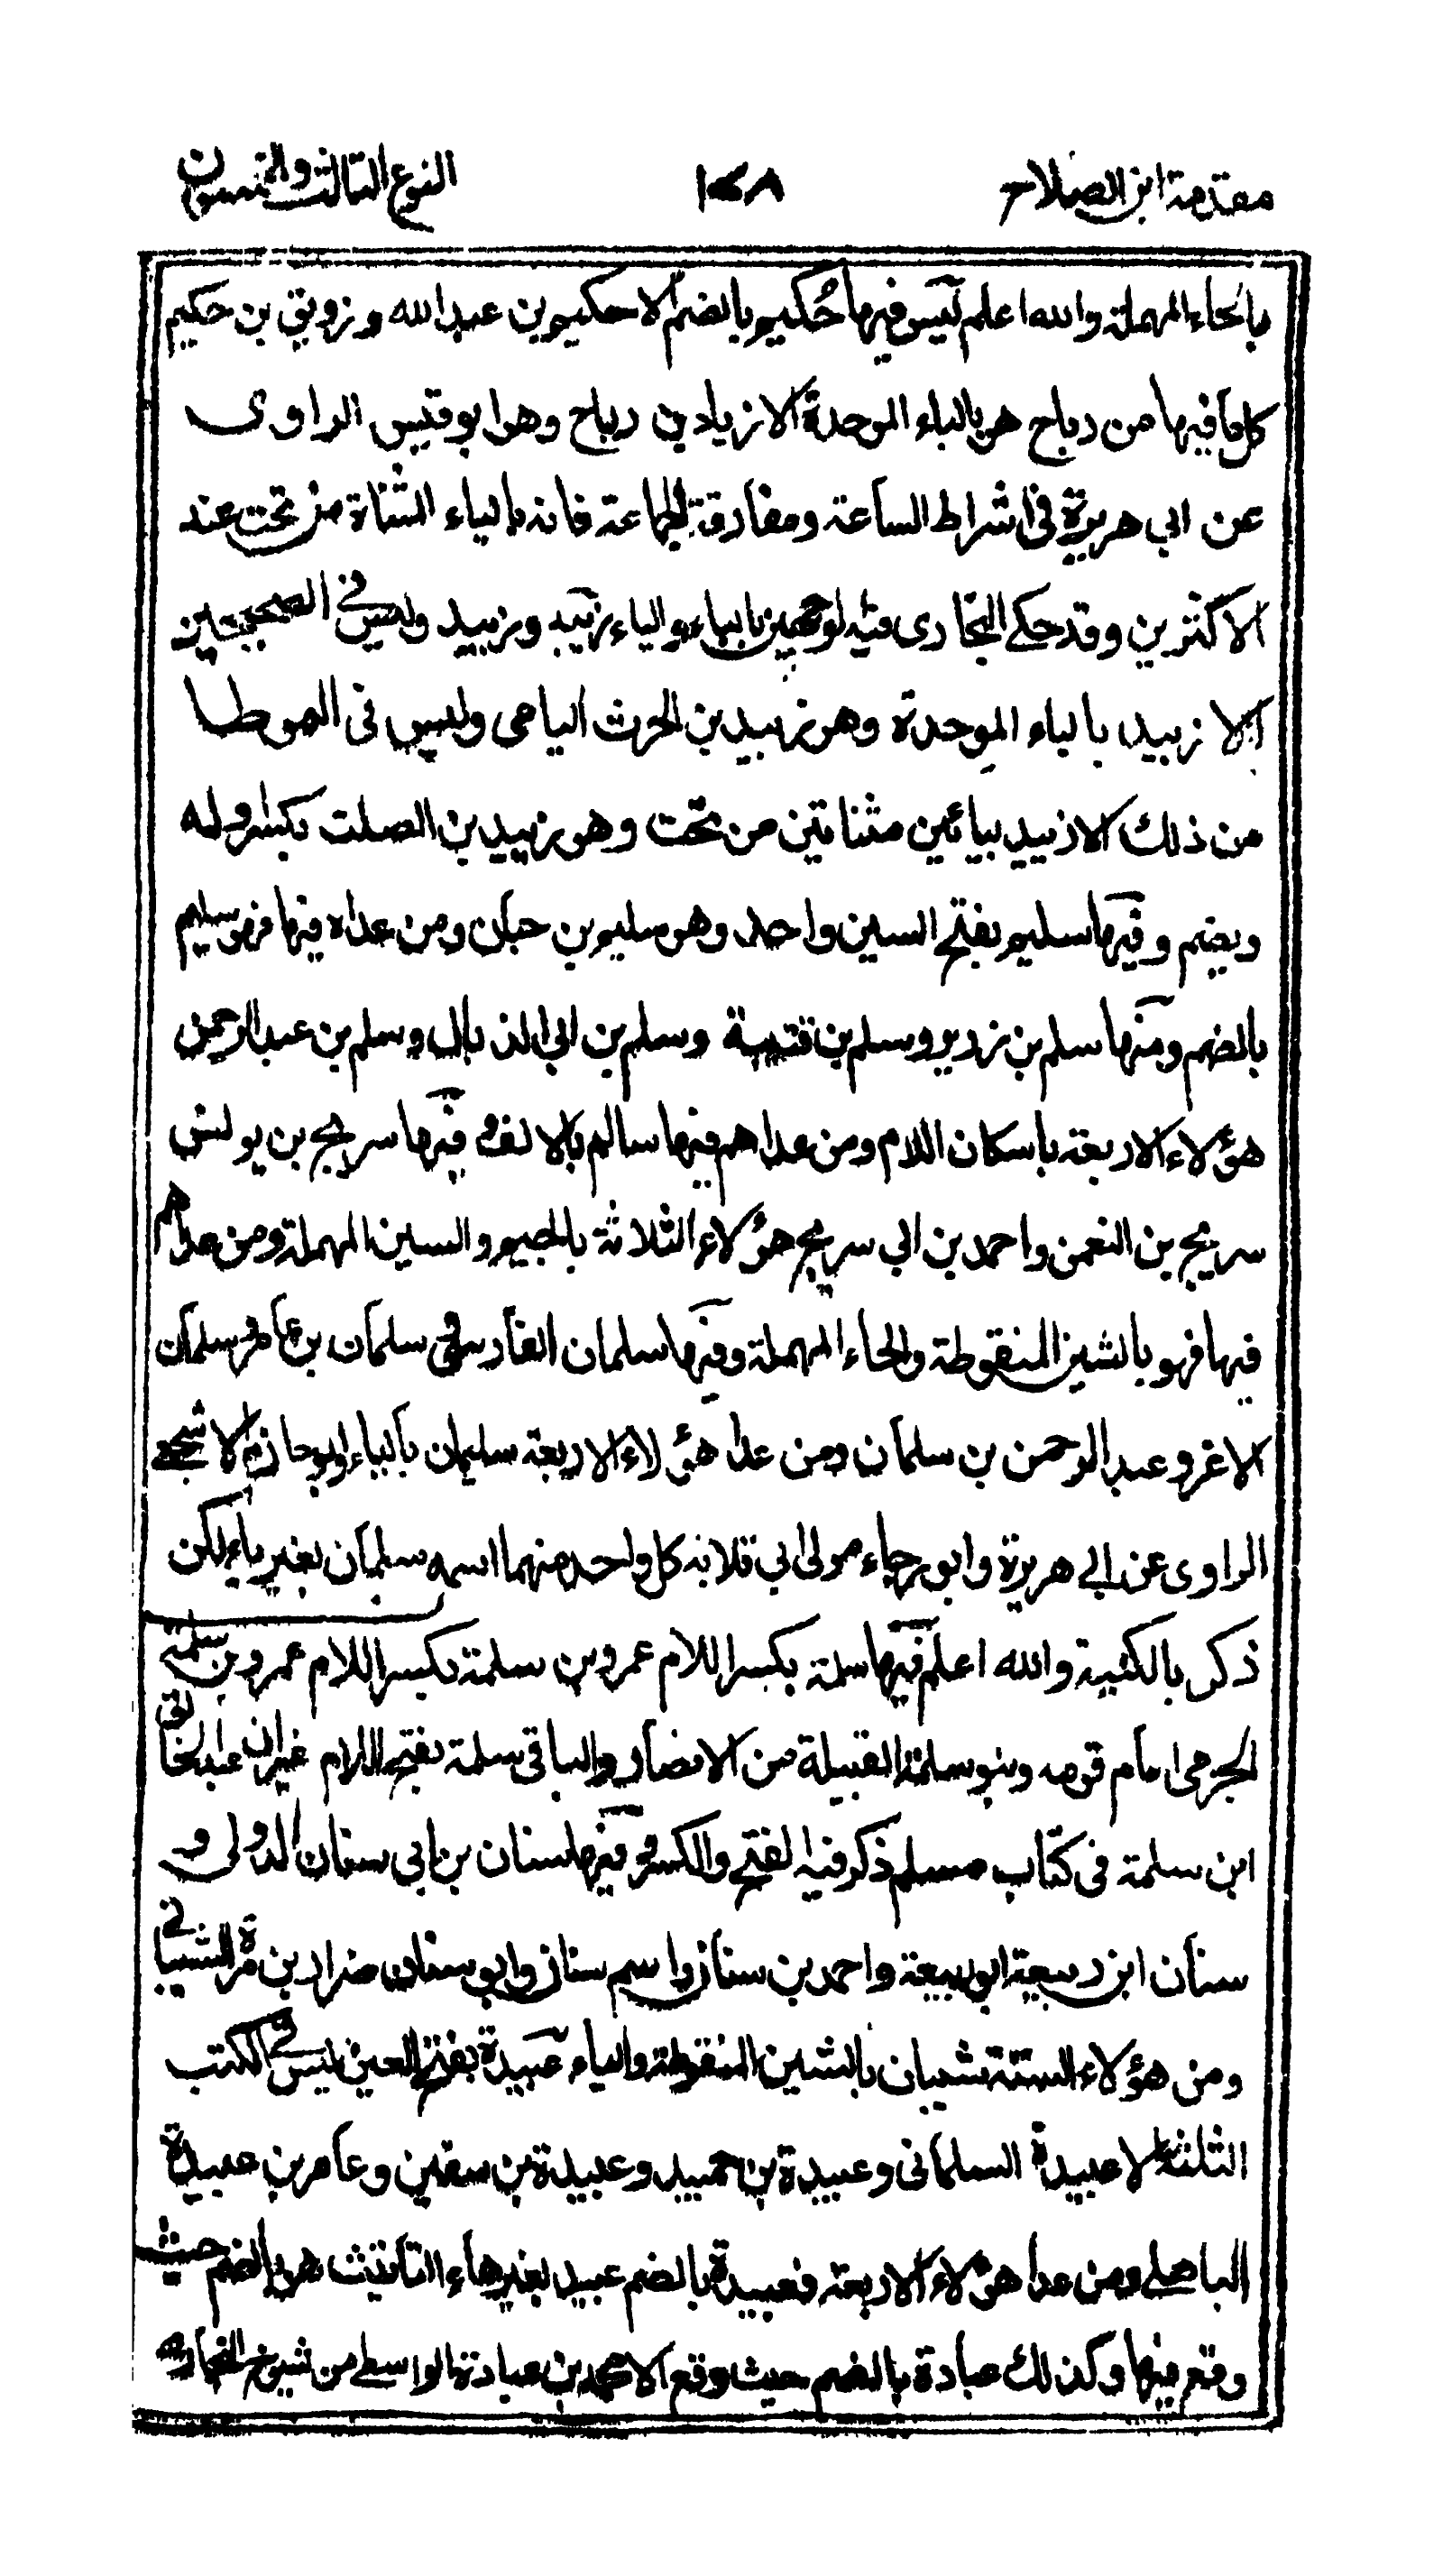 مقدمة ابن الصلاح ١٤٨ النوع الثالث والخمسون
بالحاء المهملة والله اعلم ليس فيها حُكيم بالضم الا حكيم بن عبدالله و زريق بن حكيم
كل ما فيها من رباح هو بالباء الموحدة الا زياد بن رياح وهو ابو قيس الراوى
عن ابي هريرة في اشراط الساعة ومفارقة الجماعة فانه بالياء المثناة من تحت عند
الاكثرين وقد حكى البخارى فيه الوجهين بالباء والياء زبيد وزييد وليس في الصحيحين
الا زبيد بالباء الموحدة وهو زبيد بن الحرث اليامى وليس فى الموطا
من ذلك الا زييد بيائين مثناتين من تحت وهو زييد بن الصلت بكسر اوله
ويضم وفيها سليم بفتح السين واحد وهو سليم بن حبان ومن عداه فيها فهو سليم
بالضم ومنها سلم بن زرير وسلم بن قتيبة وسلم بن ابي الذيال وسلم بن عبد الرحمن
هؤلاء الاربعة باسكان اللام ومن عداهم فيها سالم بالالف وفيها سريج بن يونس
سريج بن النعمن واحمد بن ابي سريج هؤلاء الثلاثة بالجيم والسين المهملة ومن عداهم
فيها فهو بالشين المنقوطة والحاء المهملة وفيها سلمان الفارسى سلمان بن عامر سلمان
الاغر وعبد الرحمن بن سلمان ومن عدا هؤلاء الاربعة سليمان بالياء وابو حازم الاشجعى
الراوى عن ابى هريرة وابو رجاء مولى ابي قلابة كل واحد منهما اسمه سلمان بغير ياء لكن
ذكر بالكنية والله اعلم فيها سلمة بكسر اللام عمرو بن سلمة بكسر اللام عمرو بن سلمة
الجرمى امام قومه وبنو سلمة القبيلة من الانصار والباقى سلمة بفتح اللام غير ان عبد الخالق
ابن سلمة فى كتاب مسلم ذكر فيه الفتح والكسر وفيها سنان بن ابي سنان الدولى و
سنان ابن ربيعة ابو ربيعة واحمد بن سنان وام سنان وابو سنان ضرار بن مرة الشيبانى
ومن هؤلاء الستة شيبان بالشين المنقوطة والياء عبيدة بفتح العين ليس فى الكتب
الثلثة الا عبيدة السلمانى وعبيدة بن حميد وعبيدة بن سفين وعامر بن عبيدة
الباهلى ومن عدا هؤلاء الاربعة فعبيدة بالضم عبيد بغير هاء التانيث هو بالضم حيث
وقع فيها وكذلك عبادة بالضم حيث وقع الا محمد بن عبادة الواسطى من شيوخ البخارى